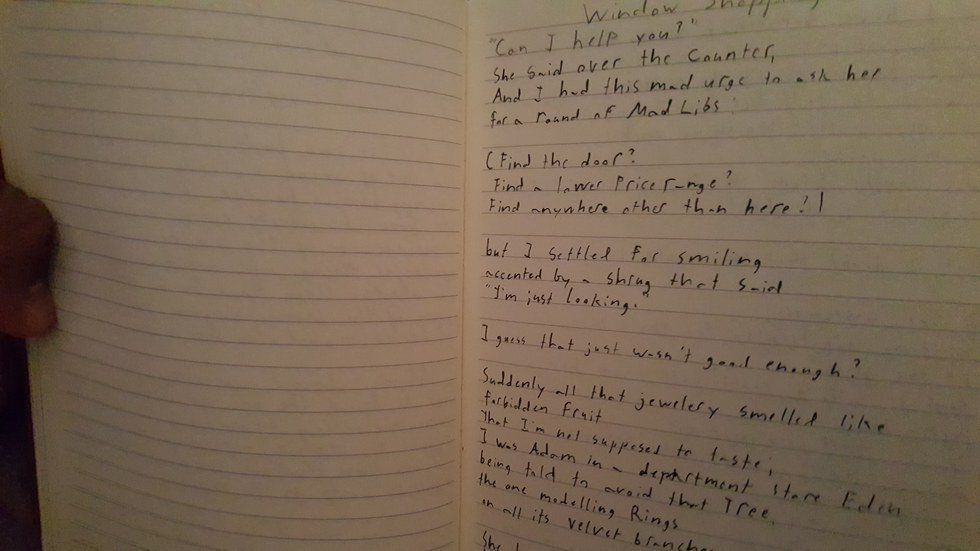 Window Shopping
"Can I help you?"
She said over the Counter,
And I had this mad urge to ask her
for a round of Mad Libs:
(Find the door?
Find a lower Price range?
Find anywhere other than here?)
but I settled for smiling
accented by a shrug that said
"I'm just looking."
I guess that just wasn't good enough?
Suddenly all that jewelery smelled like
forbidden fruit
that I'm not supposed to taste;
I was Adam in a department store Eden
being told to avoid that Tree,
the one modelling Rings
on all its velvet branches
She